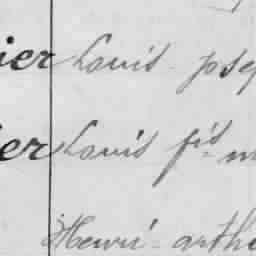 ier Louis josep
ier Louis fis m
Henri arthu